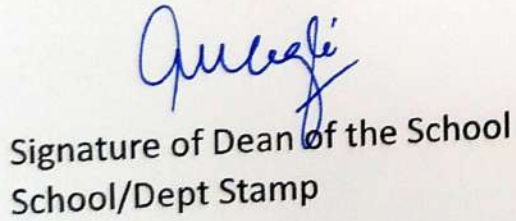 Signature of Dean of the School
School/Dept Stamp